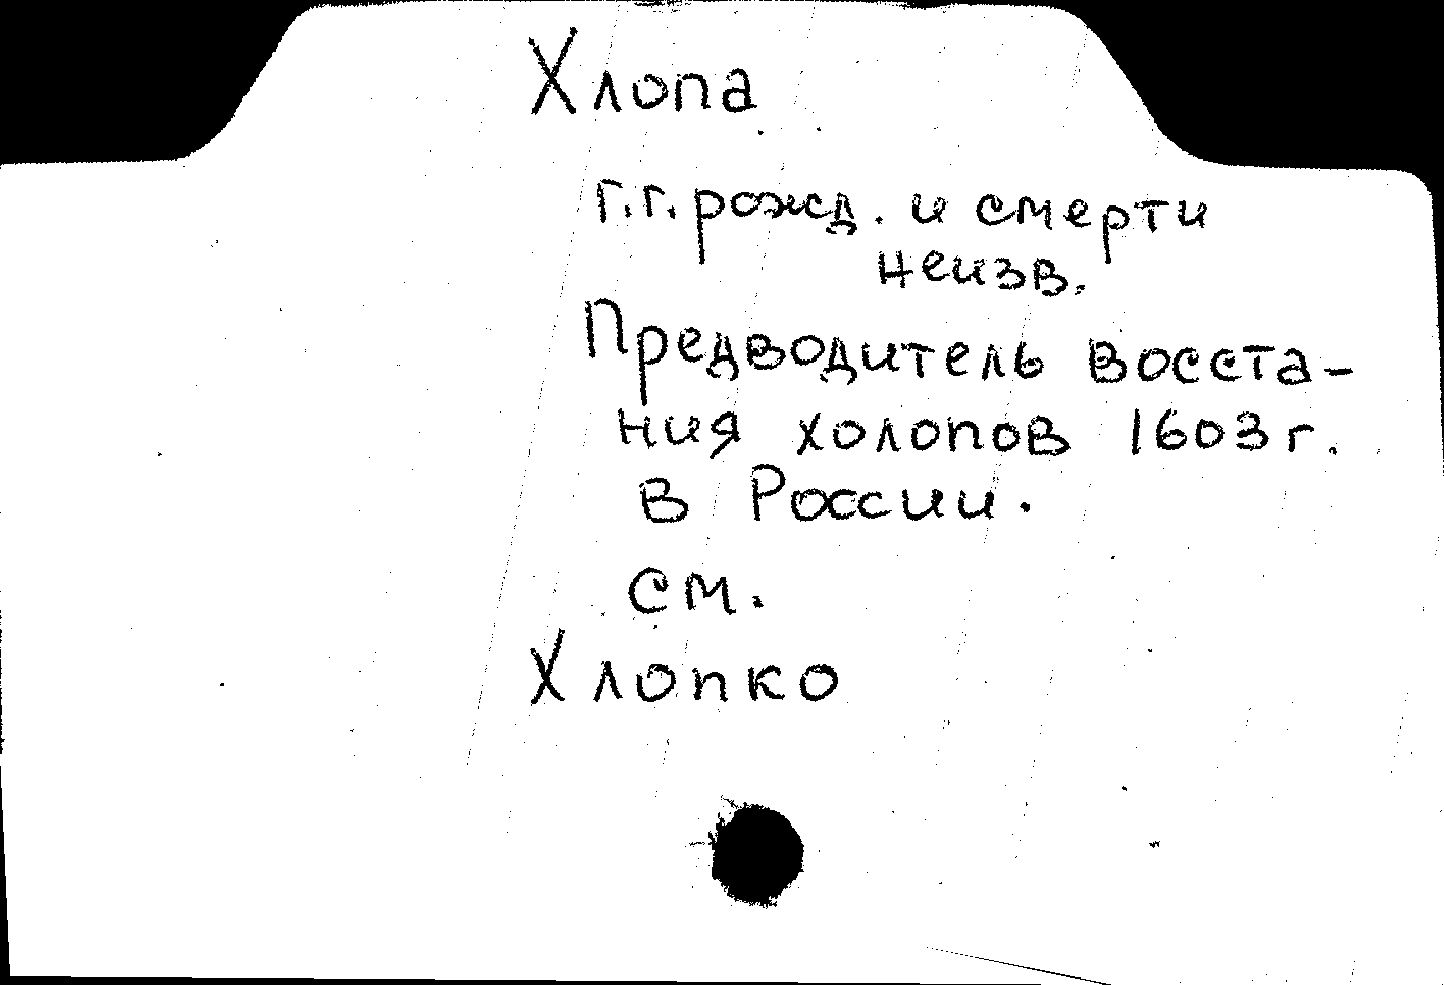 Хлопа
г.г. рожд. и смерти
неизв.
Предводитель восста-
ния холопов 1603 г.
в России.
см.
Хлопко